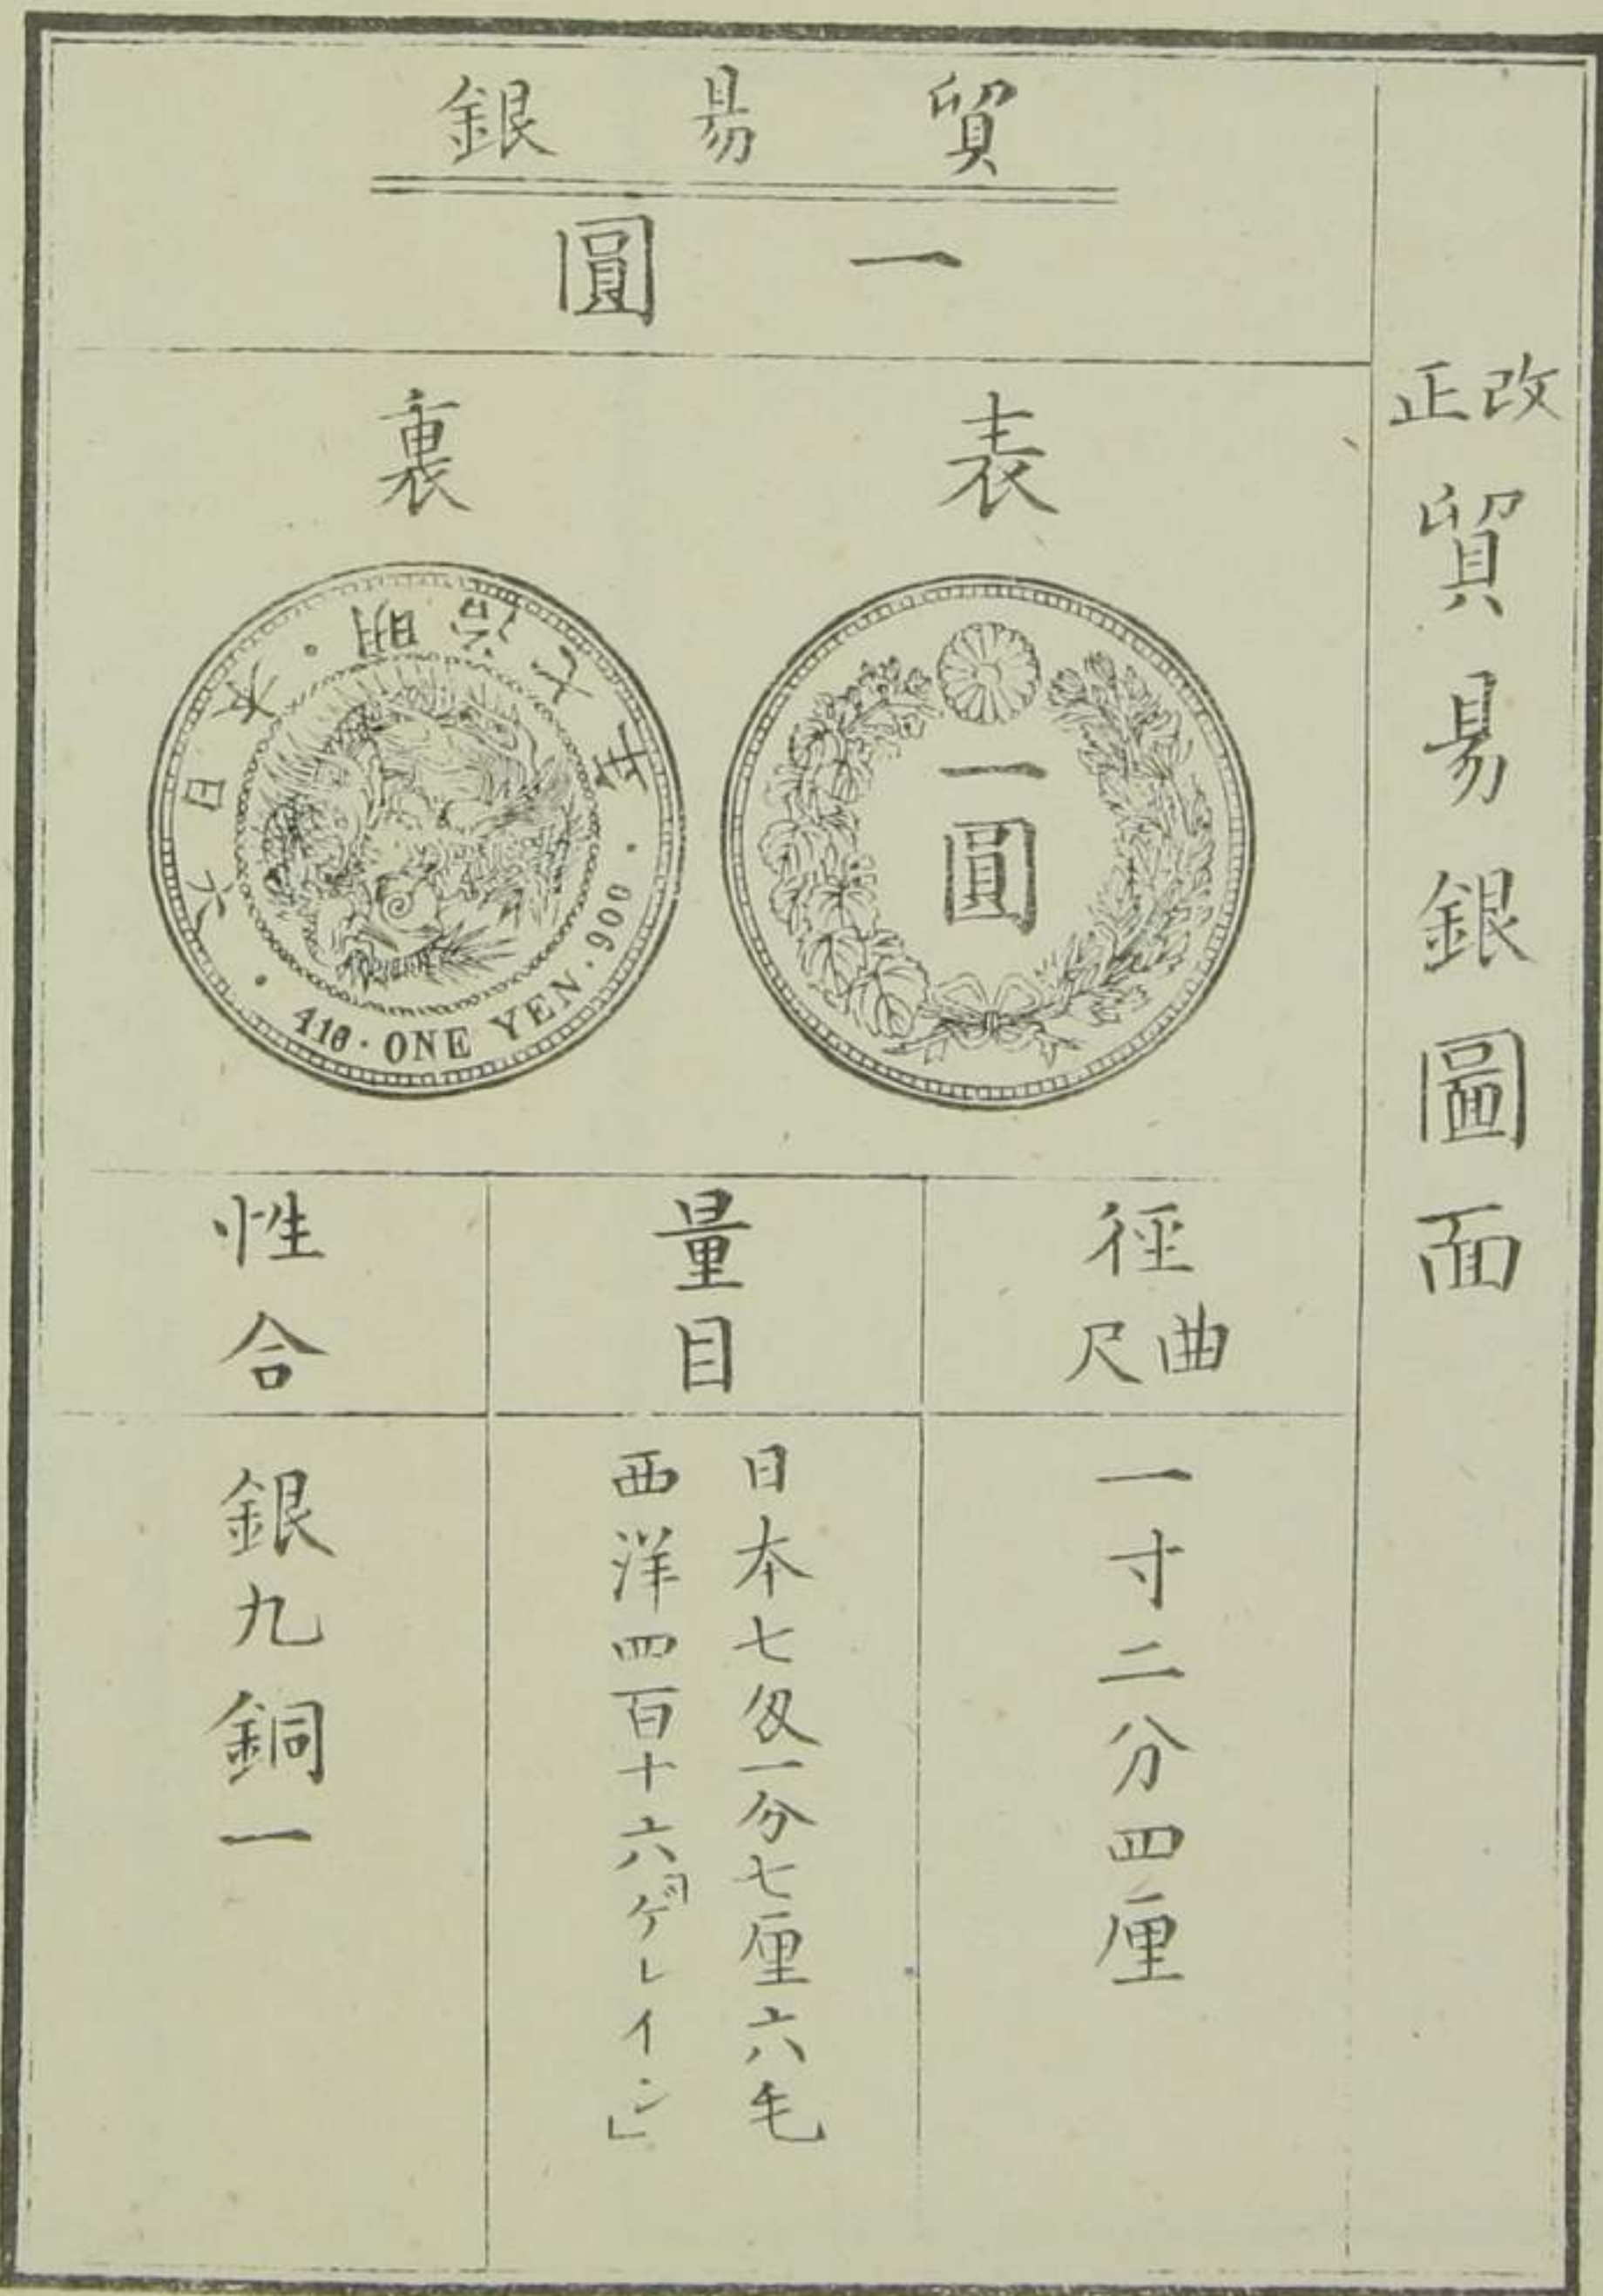 改正貿易銀圖面
貿易銀
一圓
表
一圓
裏
大日本・明治七年
416・ONE YEN・900
徑曲尺
一寸二分四厘
量目
日本七匁一分七厘六毛
西洋四百十六「ゲレイン」
性合
銀九銅一